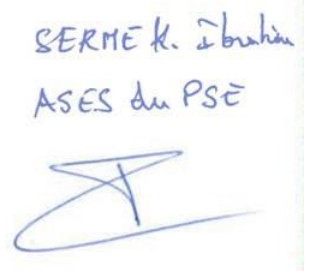 SERME K. Ibrahim
ASES du PSE